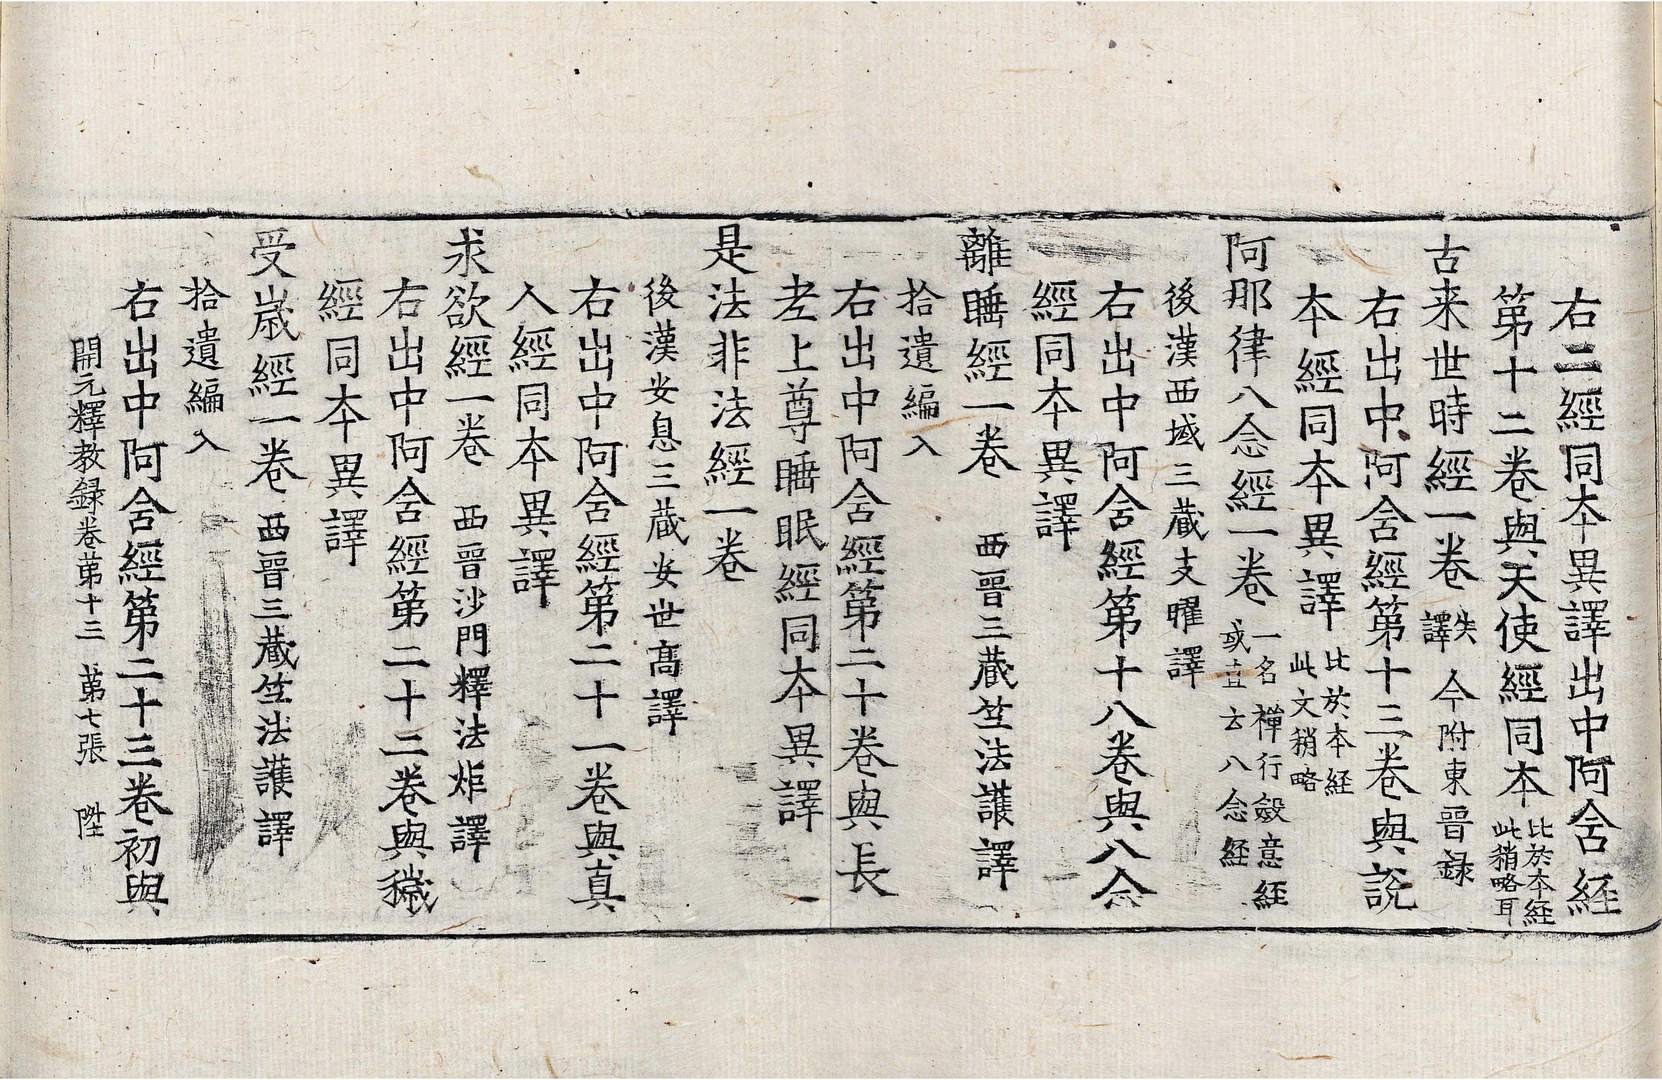 右二經同本異譯出中阿含経
第十二卷與天使經同本比於本経
此稍略耳
古来世時經一卷失
譯今附東晉録
右出中阿含經第十三卷與說
本經同本異譯比於本経
此文稍略
阿那律八念經一卷一名禪行斂意経
或直云八念経
後漢西域三蔵支曜譯
右出中阿含經第十八卷與八念
經同本異譯
離睡經一卷 西晉三蔵竺法護譯
拾遺編入
右出中阿含經第二十卷與長
老上尊睡眠經同本異譯
是法非法經一卷
後漢安息三蔵安世高譯
右出中阿含經第二十一卷與真
人經同本異譯
求欲經一卷 西晉沙門釋法炬譯
右出中阿含經第二十二卷與穢
經同本異譯
受歲經一卷 西晉三蔵竺法護譯
拾遺編入
右出中阿含經第二十三卷初與
開元釋教録卷苐十三 苐七張 陞